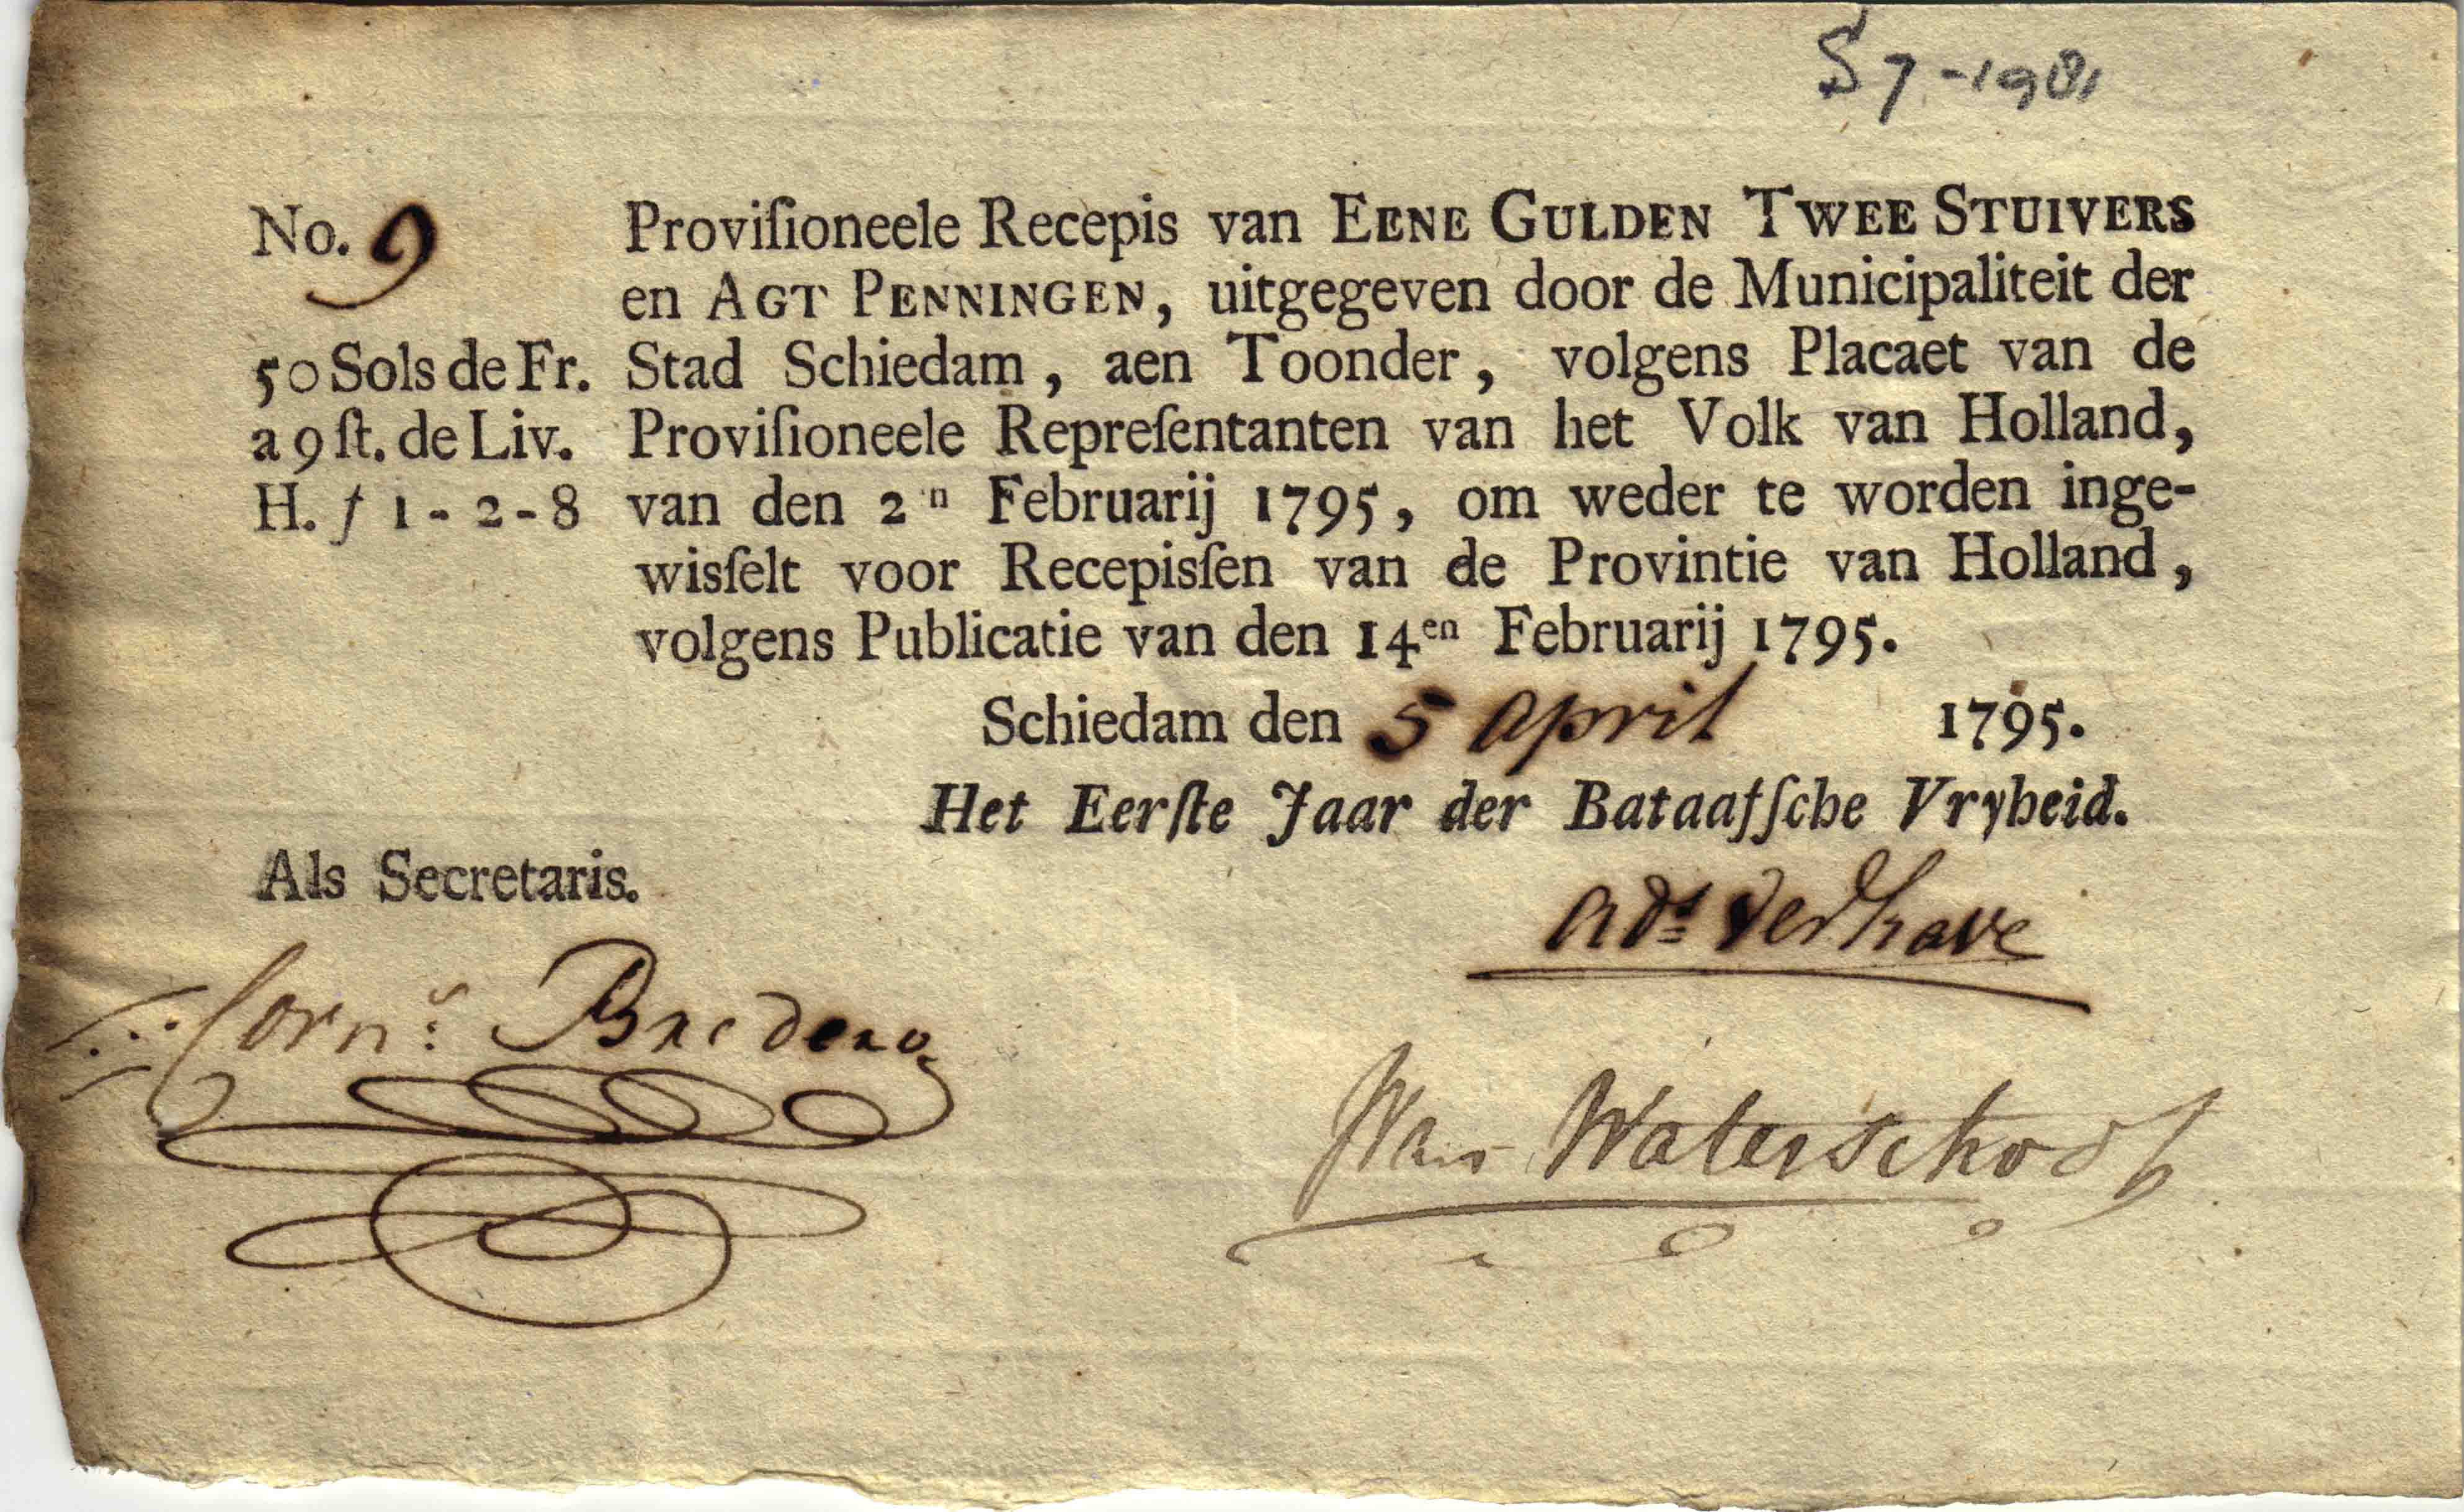 S7-1981
No. 9
50 Sols de Fr.
a 9 ſt. de Liv.
H. f 1 - 2 - 8
Proviſioneele Recepis van EENE GULDEN TWEE STUIVERS
en AGT PENNINGEN, uitgegeven door de Municipaliteit der
Stad Schiedam, aen Toonder, volgens Placaet van de
Proviſioneele Repreſentanten van het Volk van Holland,
van den 2n Februarij 1795, om weder te worden inge-
wisſelt voor Recepisſen van de Provintie van Holland,
volgens Publicatie van den 14en Februarij 1795.
Schiedam den 5 April 1795.
Het Eerſte Jaar der Bataafſche Vryheid.
Als Secretaris.
Ads Verhave
Corns: Bredero
Waterschoot